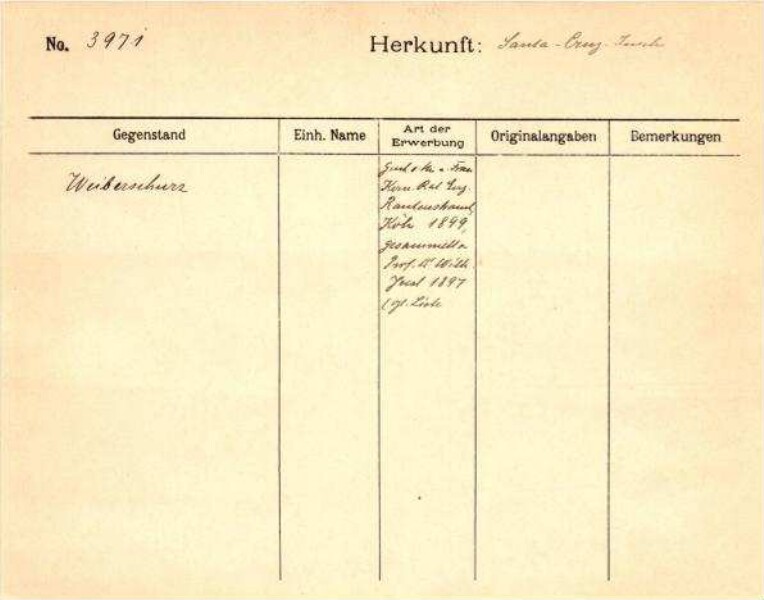 No. 3971 Herkunft: Santa-Cruz-Inseln
Gegenstand Einh. Name Art der Erwerbung Originalangaben Bemerkungen
Weiberschurz
Kom. Rat Eug.
Rautenstrauch,
Köln 1899,
gesammelt v.
Prof. Dr Wilh.
Joest 1897
Liste